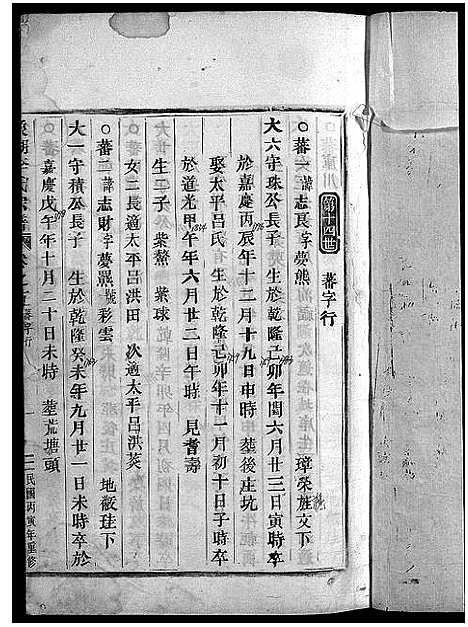 第十四世
蕃字行
○蕃一諱志良字夢熊 璋榮旌文下
大六守珠公長子 生於乾隆己卯年閏六月廿三日寅時卒
於嘉慶丙辰年十二月十九日申時 塟後庄坑
娶太平呂氏 生於乾隆己卯年十一月初十日子時卒
於道光甲午年六月廿二日午時 見耆壽
生二子 紫鰲 紫球
女二長適太平呂洪田 次適太平呂洪芺
○蕃二諱志財字夢羆號彩雲 地敝珪下
大一守積公長子 生於乾隆癸未年九月廿一日未時卒於
嘉慶戊午年十月二十日未時 塟荒塘頭
民國丙寅年重修